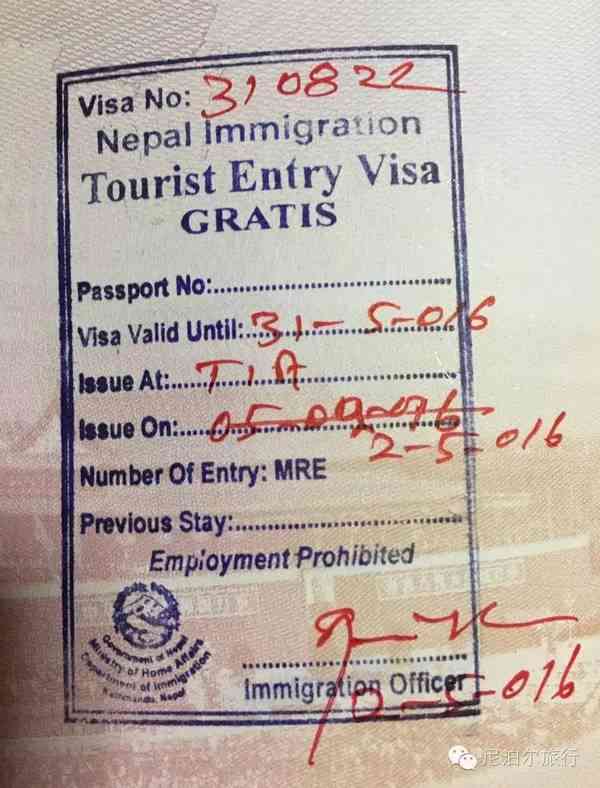 Visa No: 310822
Nepal Immigration
Tourist Entry Visa
GRATIS
Passport No:
Visa Valid Until: 31-5-016
Issue At: TIA
Issue On:
2-5-016
Number Of Entry: MRE
Previous Stay:
Employment Prohibited
Government of Nepal
Ministry of Home Affairs
Department of Immigration
Kathmandu, Nepal
Immigration Officer
-5-016
尼泊尔旅行